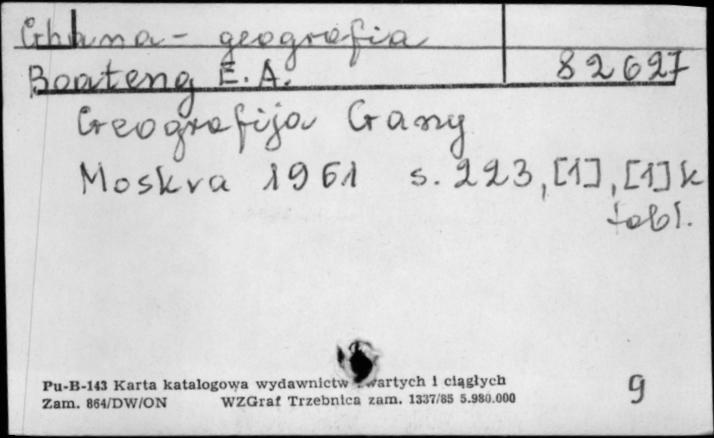 Ghana - geografia
Boateng E. A. 82627
Geografija Gany
Moskva 1961 s. 223, [1], [1] k
tabl.
Pu-B-143 Karta katalogowa wydawnictw zwartych i ciągłych
Zam. 864/DW/ON WZGraf Trzebnica zam. 1337/85 5.980.000
9